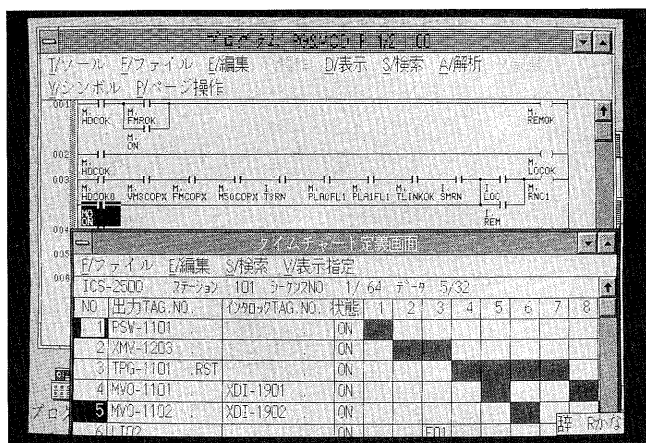 T/ツール F/ファイル E/編集 D/表示 S/検索 A/解析
Y/シンボル P/ページ操作
001 M. HDCOK M. FMROK M. REMOK
M. ON
002 M. HDCOK M. LOCOK
003 M. HDCOK0 M. VMSCOPX M. FMCOPX M. M50COPX I. T3RN M. PLA0FL1 M. PLA1FL1 M. TLINKOK I. SMRN I. LOC M. RNC1
NO ON I. REM
004
タイムチャート定義画面
F/ファイル E/編集 S/検索 V/表示指定
005
006
ICS-2500 ステーション 101 シーケンスNO 1/ 64 データ 5/32
NO 出力TAG.NO. インタロックTAG.NO. 状態 1 2 3 4 5 6 7 8
1 PSW-1101 ON
2 XMV-1203 ON
3 TPG-1101 .RST ON
4 MVO-1101 XDI-1901 ON
5 MVO-1102 XDI-1902 ON
6 LT02 ON E01
辞 Rかな